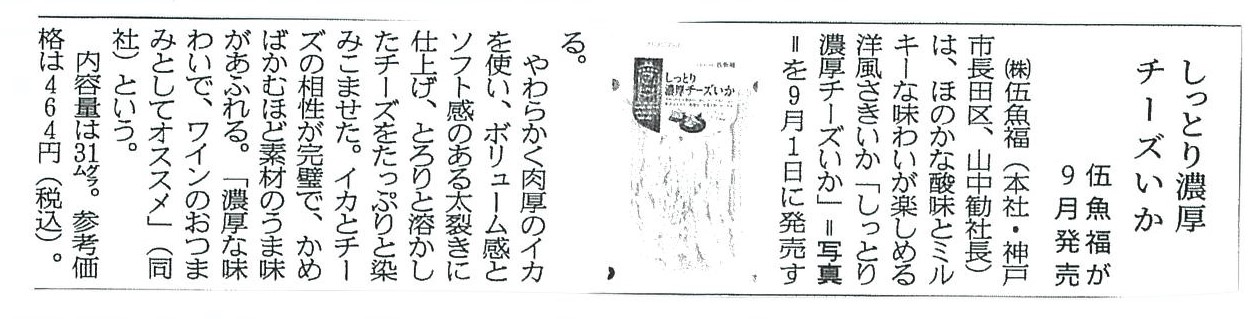 しっとり濃厚
チーズいか
伍魚福が
9月発売
㈱伍魚福（本社・神戸
市長田区、山中勧社長）
は、ほのかな酸味とミル
キーな味わいが楽しめる
洋風さきいか「しっとり
濃厚チーズいか」＝写真
＝を9月1日に発売す
る。
しっとり
濃厚チーズいか
やわらかく肉厚のイカ
を使い、ボリューム感と
ソフト感のある太裂きに
仕上げ、とろりと溶かし
たチーズをたっぷりと染
みこませた。イカとチー
ズの相性が完璧で、かめ
ばかむほど素材のうま味
があふれる。「濃厚な味
わいで、ワインのおつま
みとしてオススメ」（同
社）という。
内容量は31㌘。参考価
格は464円（税込）。